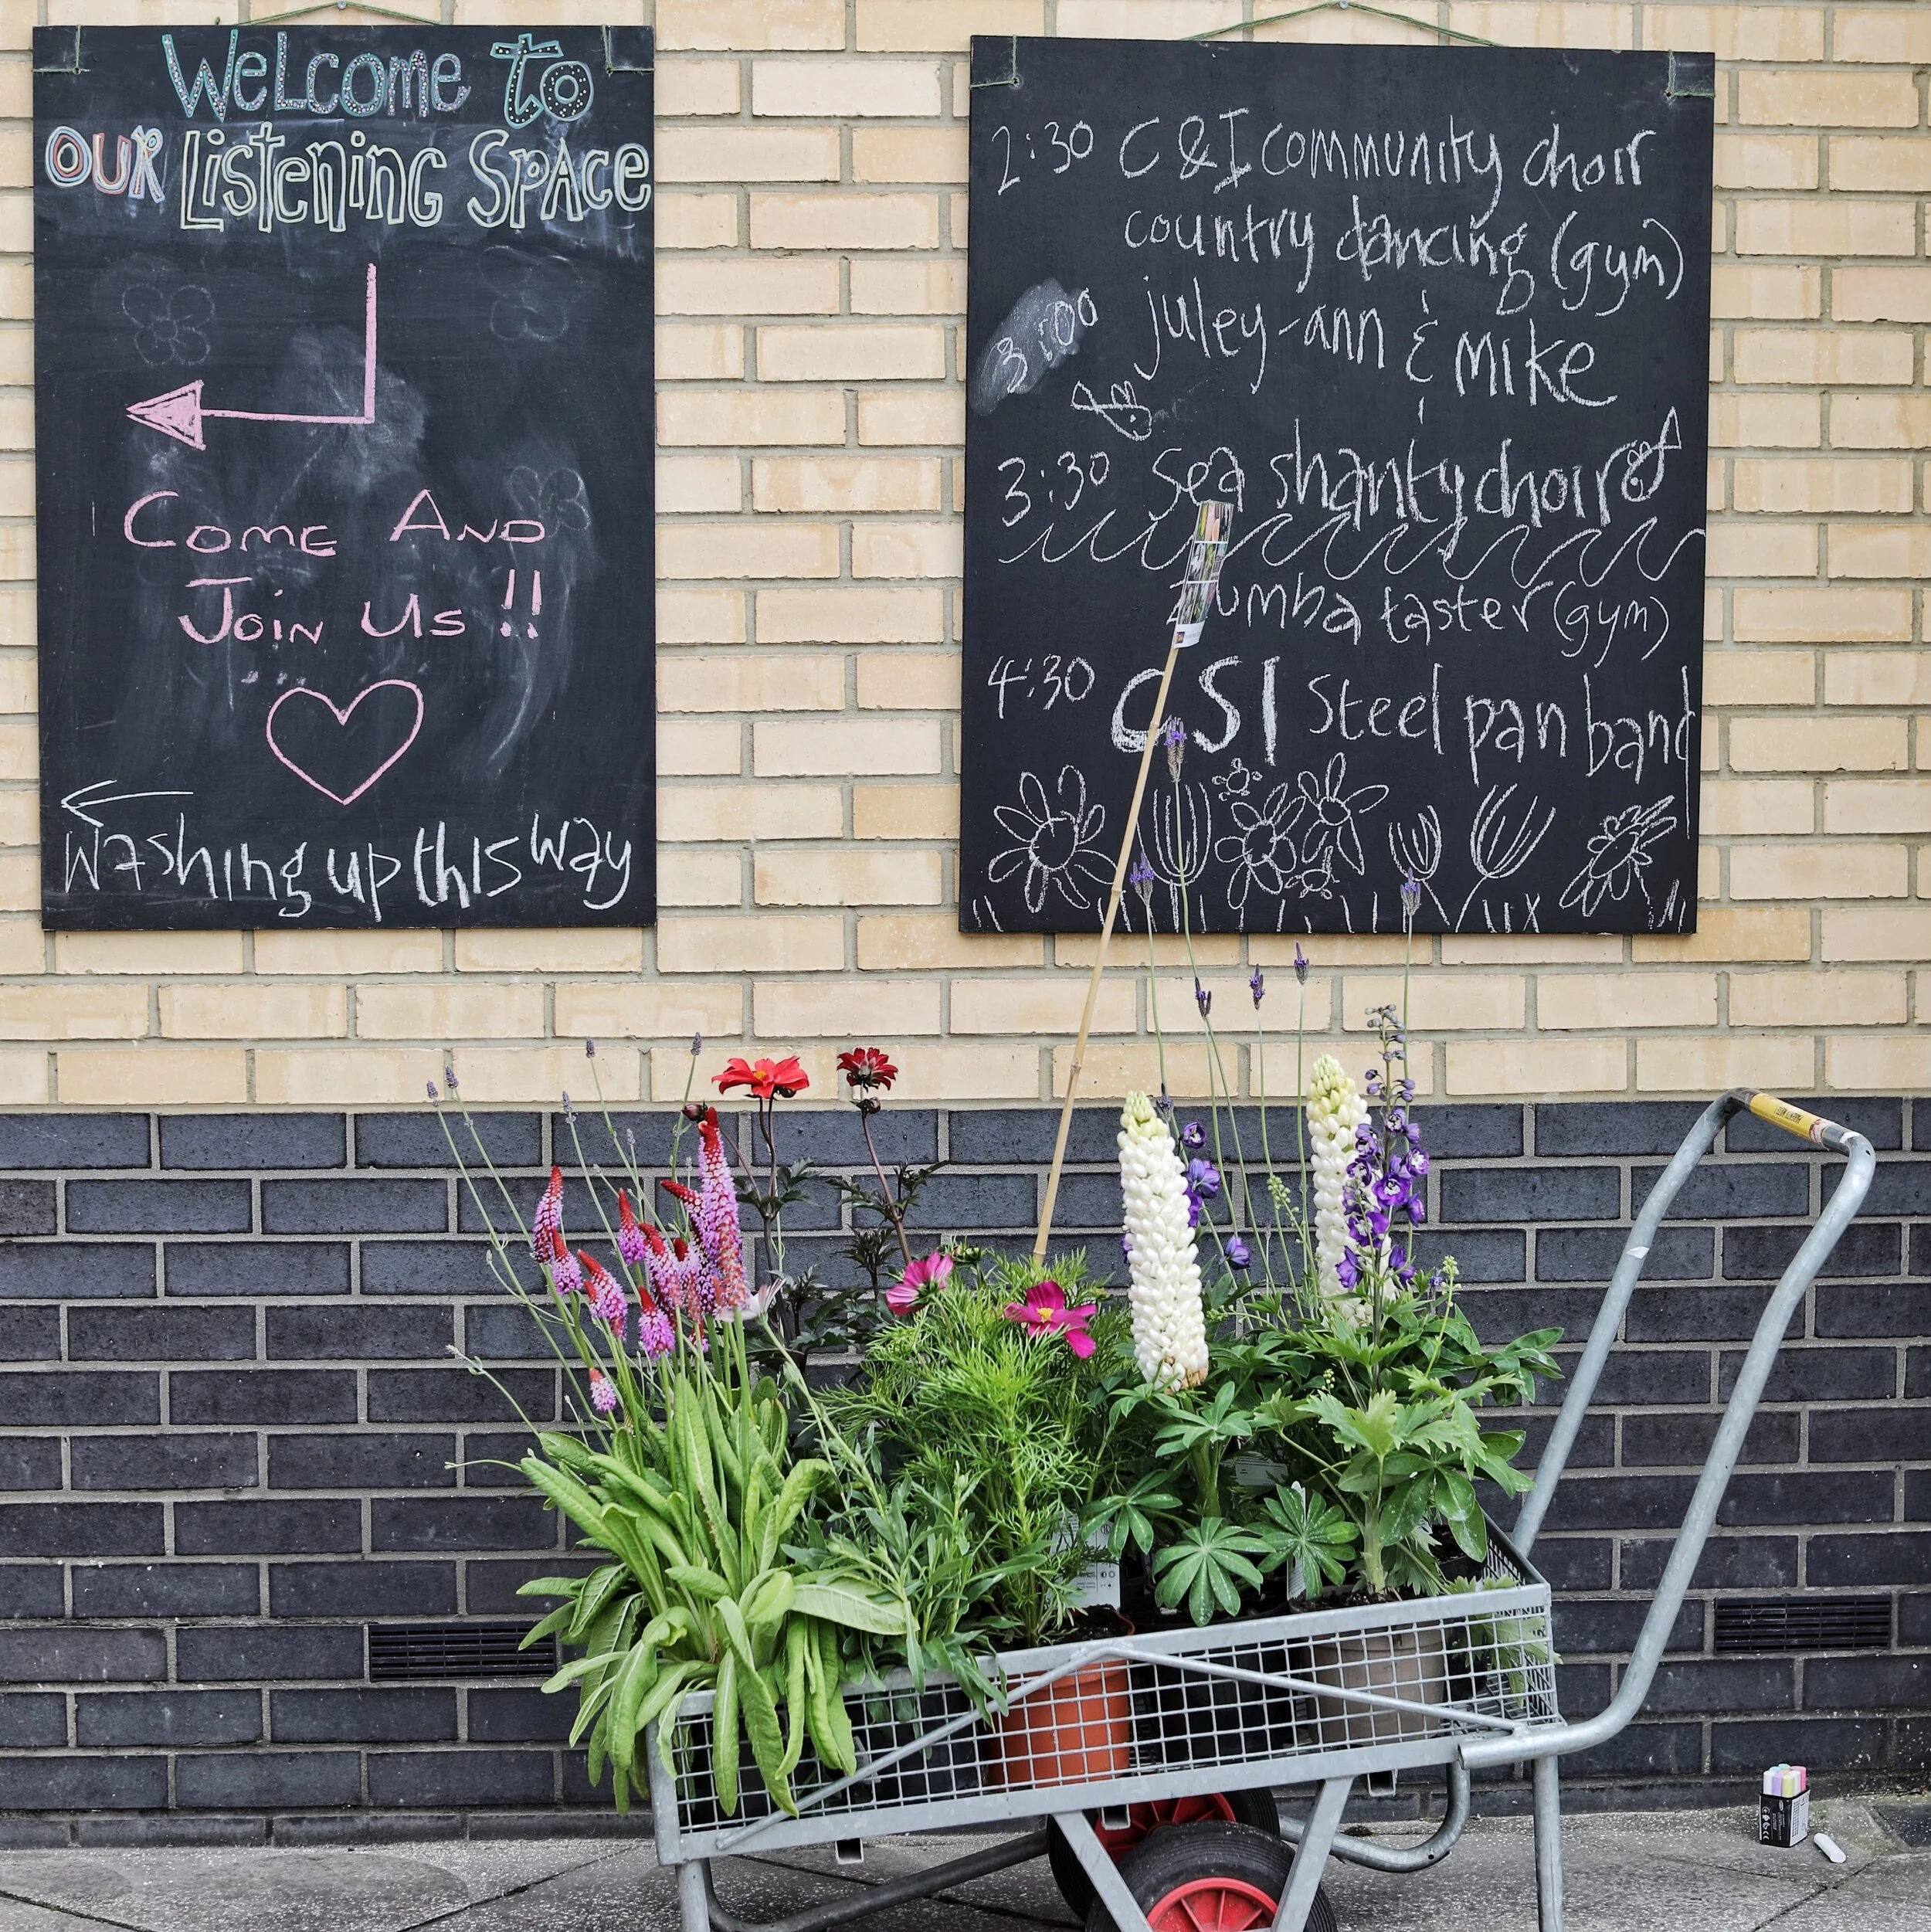 Welcome to
OUR Listening Space
Come And
Join Us !!
Washing up this way
2:30 C & I community choir
country dancing (gym)
3:00 juley-ann & mike
3:30 Sea shanty choir
zumba taster (gym)
4:30 CSI Steel pan band